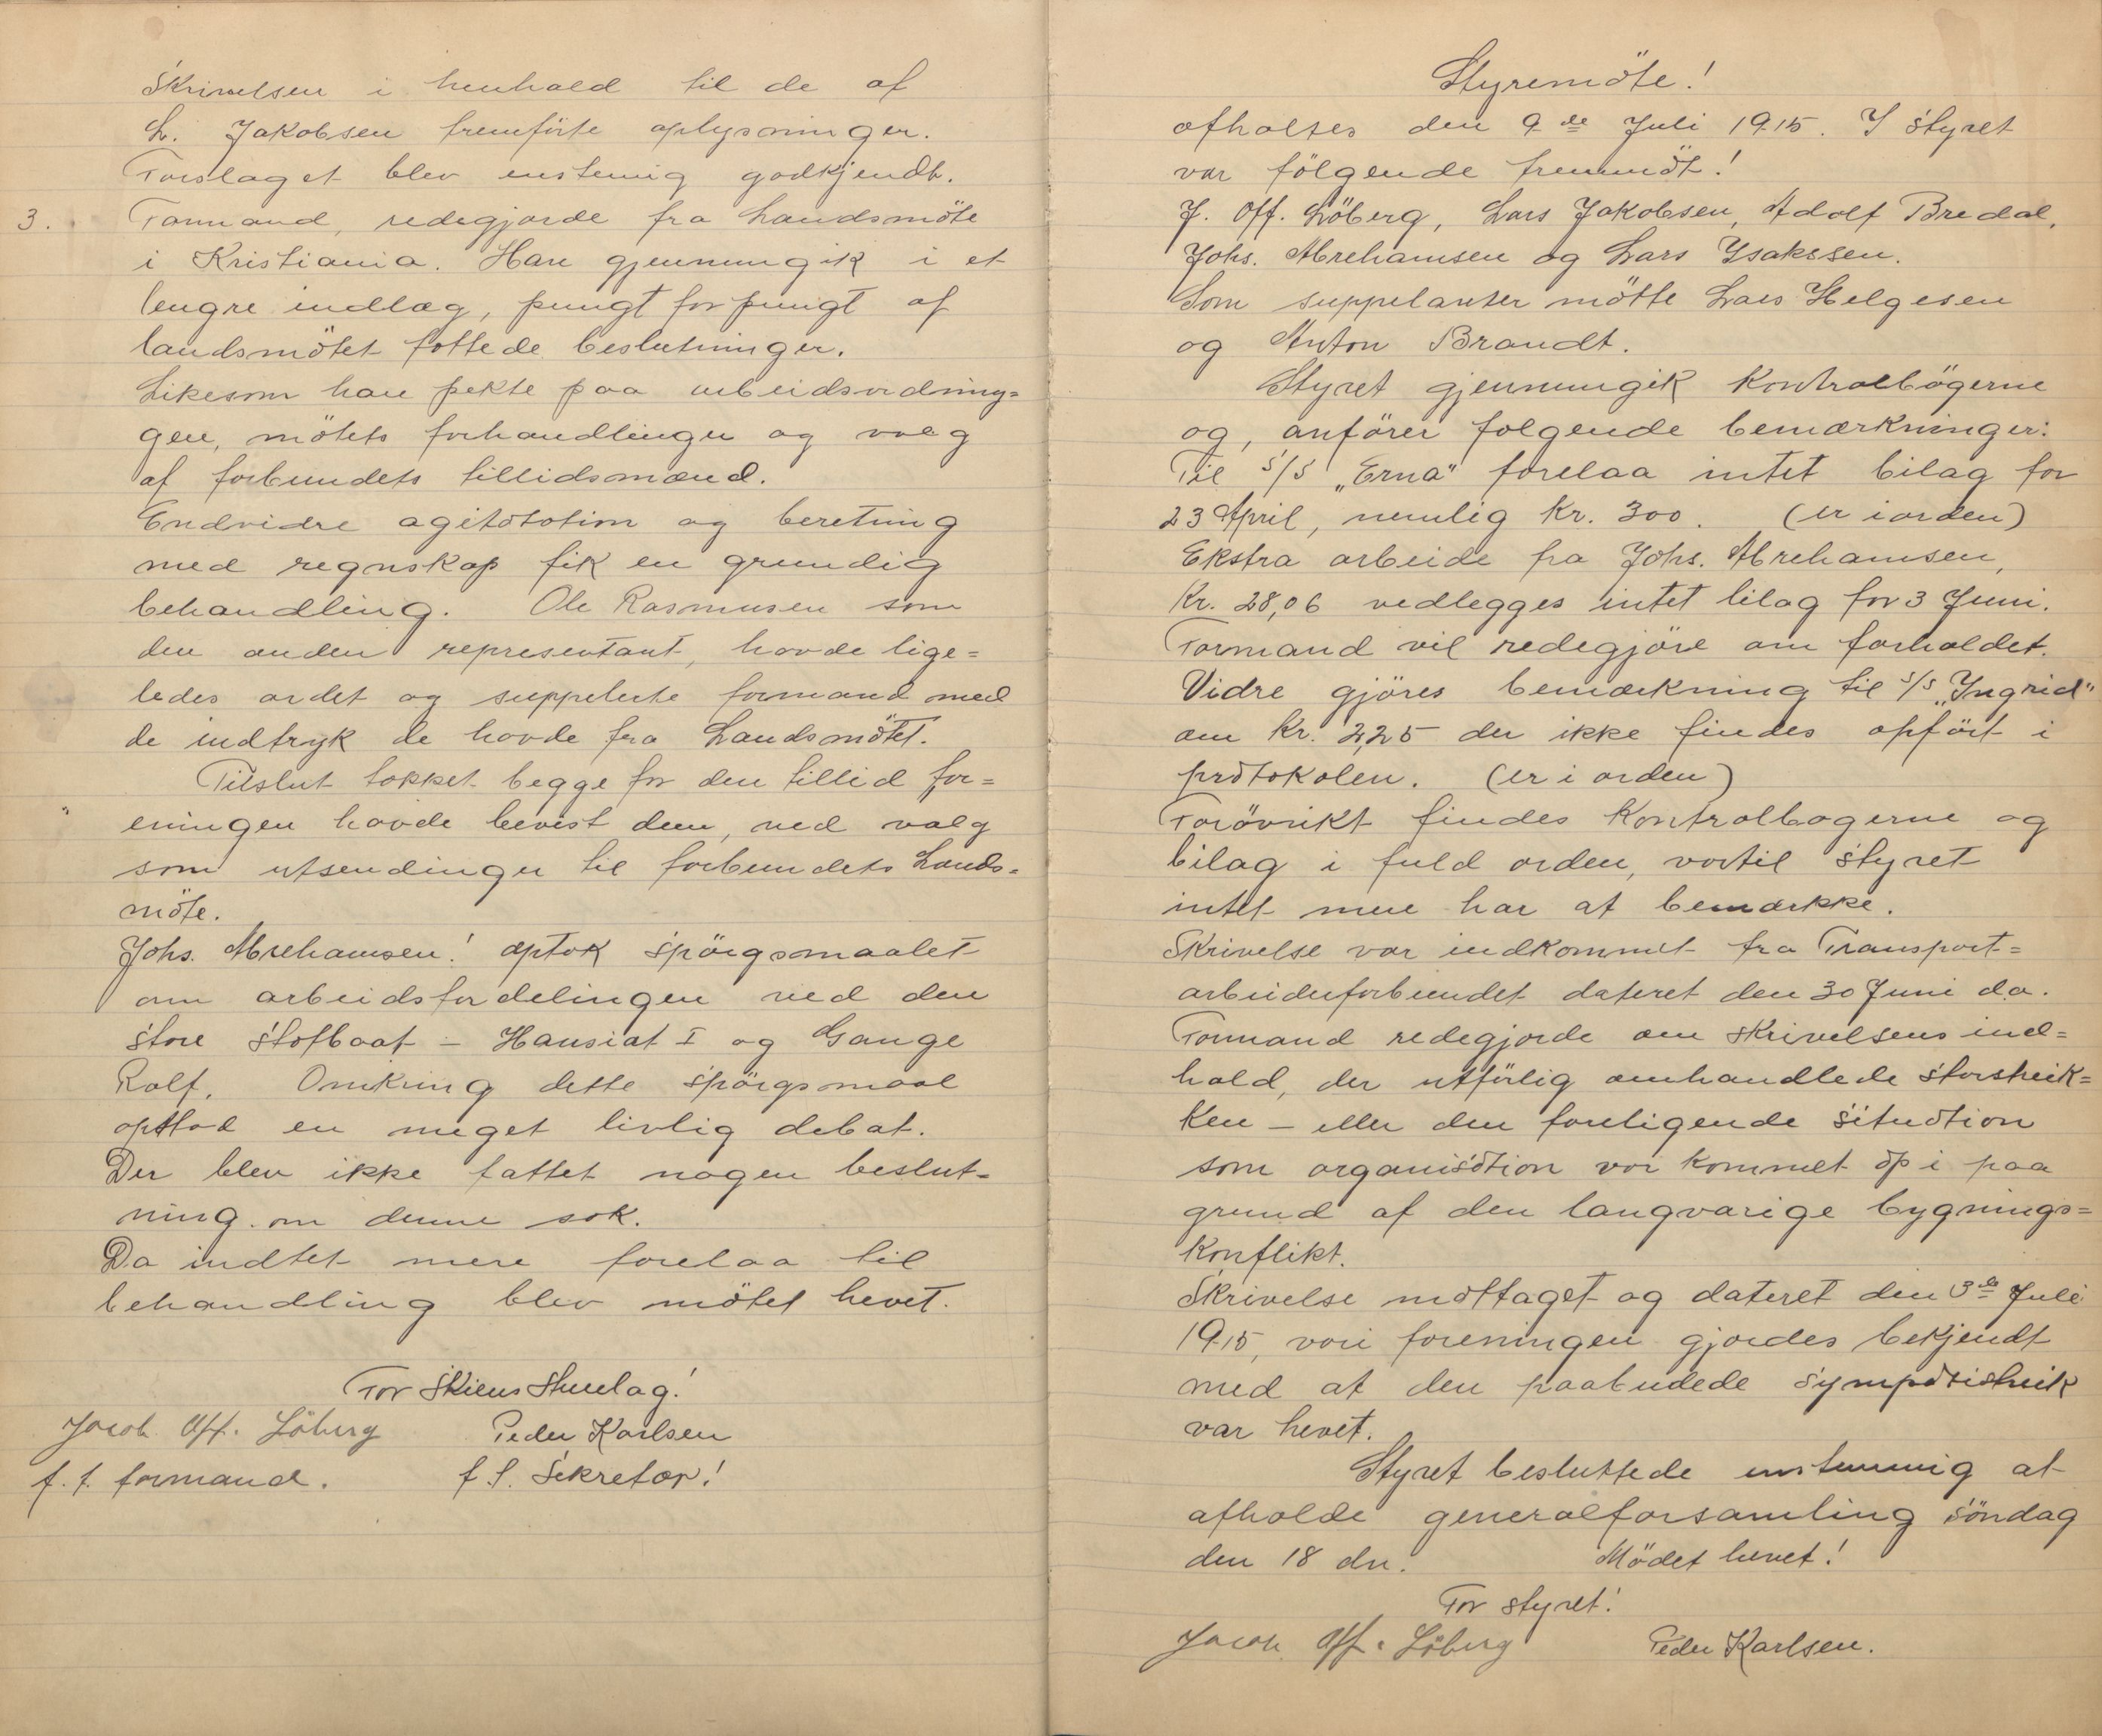 Skrivelsen i henhold til de af
L. Jakobsen fremförte oplysninger.
Forslaget blev enstemig godkjendt.
3. Formand, redegjorde fra Landsmöte
i Kristiania. Han gjennemgik i et
lengre indlæg, pungt for pungt af
landsmötet fattede beslutninger.
Likesom han pekte paa arbeidsordning=
gen, mötets forhandlinger og valg
af forbundets tillidsmænd.
Endvidre agitatotion og beretning
med regnskap fik en grundig
behandling. Ole Rasmusen som
den anden representant, havde lige=
ledes ordet og suppelerte formand med
de indtryk de havde fra Landsmötet.
Tilslut takket begge for den tillid for=
eningen havde bevist dem, ved valg
som utsendinger til forbundets Lands=
möte.
Johs. Abrehamsen! optok spörgsmaalet
om arbeidsfordelingen ved den
store Stofbaat – Hansiat I og Gange
Rolf. Omkring dette spörgsmaal
opstod en meget livlig debat.
Der blev ikke fattet nogen beslut=
ning om denne sak.
Da indtet mere forelaa til
behandling blev mötet hevet.
For Skiens Stuelag!
Jacob Off. Löberg Peder Karlsen
f. t. formand. f. t. Sekretær!
Styremöte!
afholtes den 9 de Juli 1915. I Styret
var fölgende fremmöt!
J. Off. Löberg, Lars Jakobsen, Adolf Bredal,
Johs. Abrehamsen og Lars Ysakssen.
Som suppelanter mötte Lars Helgesen
og Anton Brandt.
Styret gjennemgik Kontrolbögerne
og, anförer folgende bemærkninger:
Til S/S „Erna" forelaa intet bilag for
23 April, nemlig Kr. 300. (er i orden)
Ekstra arbeide fra Johs. Abrehamsen,
Kr. 28,06 vedlegges intet bilag for 3 Juni.
Formand vil redegjöre om forholdet.
Vidre gjöres bemærkning til S/S „Ingrid"
om Kr. 2,25 der ikke findes opfört i
protokolen. (er i orden)
Forövrikt findes Kontrolbogerne og
bilag i fuld orden, vortil Styret
intet mere har at bemærkke.
Skrivelse var indkommet fra Transport=
arbeiderforbundet dateret den 30 Juni da.
Formand redegjorde om skrivelsens ind=
hold, der utförlig omhandlede storstreik=
ken – eller den foreligende Situation
som organisation var kommet op i paa
grund af den langvarige bygnings=
konflikt.
Skrivelse mottaget og dateret den 3 de Juli
1915, vori foreningen gjordes bekjendt
med at den paabudede sympatistreik
var hevet.
Styret besluttede enstemmig at
afholde generalforsamling söndag
den 18 dn. Mödet hevet!
For styret!
Jacob Off. Löberg Peder Karlsen.